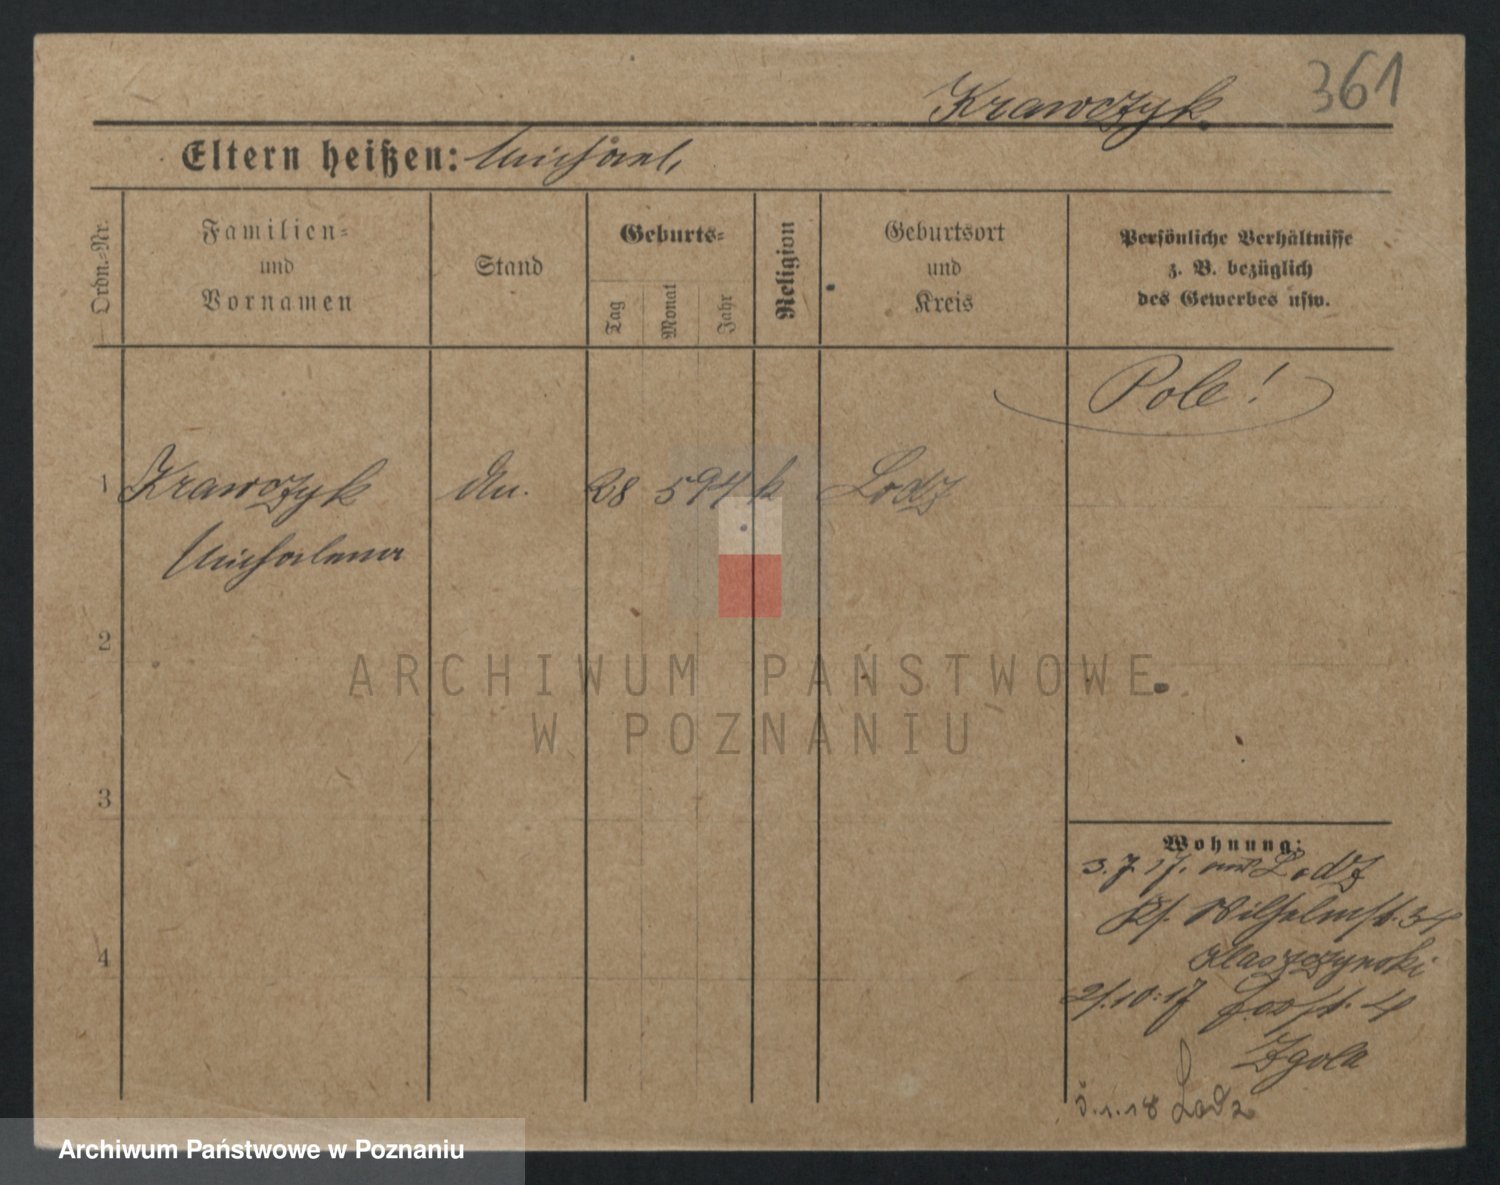 361
Krawczyk
Eltern heißen: Michael,
Ordn.-Nr.
Familien-
und
Vornamen
Stand
Geburts-
Tag
Monat
Jahr
Religion
Geburtsort
und
Kreis
Persönliche Verhältnisse
z. B. bezüglich
des Gewerbes usw.
Pole!
1 Krawczyk 28 5 94 k Lodz
Michalena
2
ARCHIWUM PAŃSTWOWE
W POZNANIU
3
Wohnung:
3.7.17. Lodz
Wilhelmst. 34
4
Klaszczynski
21.10.17 4
Zgola
1.18 Lodz
Archiwum Państwowe w Poznaniu